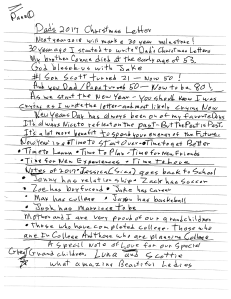 Dad's 2017 Christmas Letter
Next year 2018 will make a 30 year milestone!
30 years ago I started to write "Dad's Christmas Letters
My brother Lonnie died at the early age of 53.
God bless bus with Jake
#1 Son Scott turned 21 — Now 50!
And you Dad/Papa turned 50 — Now to be 80!
As we start the New Year — You should know I was
crying as I wrote the letter and most likely crying Now
New Years Day has always been one of my favorite days
It's always nice to reflect on the past — But The Past is Past.
It's a lot more benefit to spend your energy of the Future.
New Year is a • Time to start over • Time to get Better
• Time to Learn • Time to Plan • Time for New Friends
• Time for New Experiences • Time to be
Notes of 2017 Jessica (Sico) goes back to School
• Jenny has relationship • Zack has Soccer
• Zoe has boyfriend • Jake has career
• May has college • has basketball
• Josh has Marine to be
Mother and I are very proud of our grandchildren
• Those who have completed College • Those who
are In College And those who are planning College
A special note of Love for our Special
Great Grandchildren Luna and Scottie
what amazing Beautiful Ladies